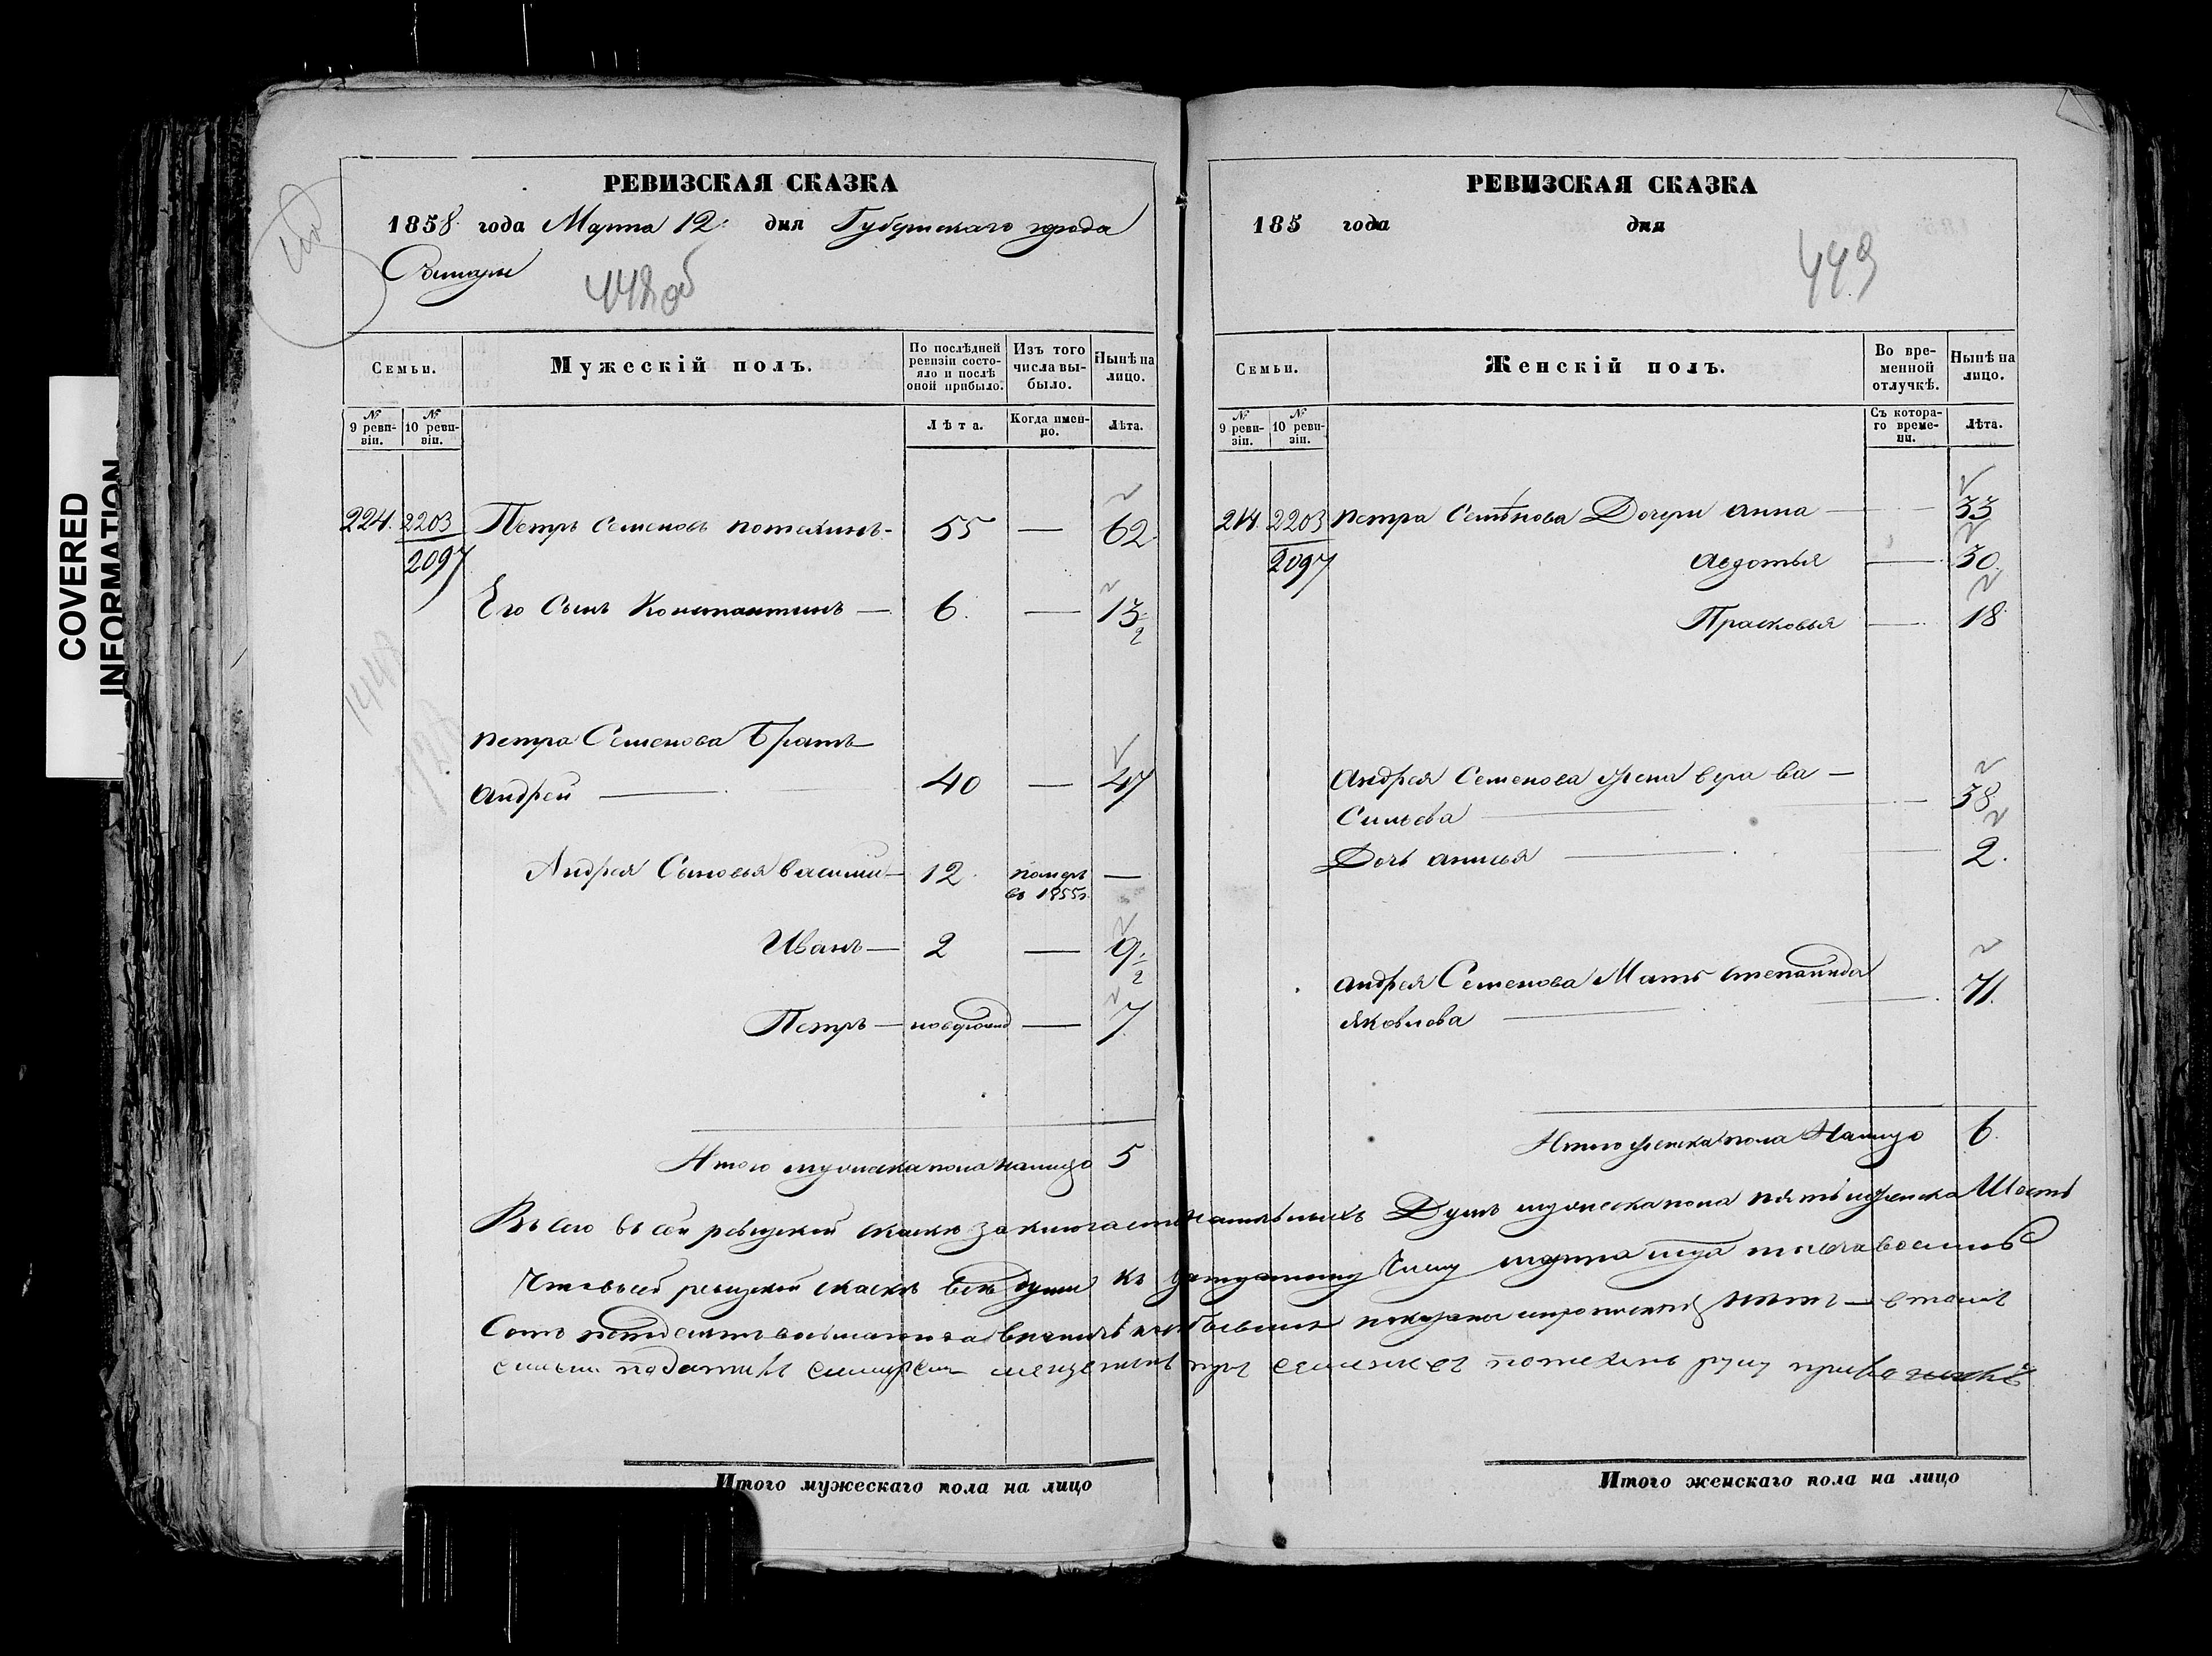 COVERED
INFORMATION
РЕВИЗСКАЯ СКАЗКА
1858 года Марта 12 дня Губернскаго города
Самары
448 об
Семьи.
Мужескій полъ.
По послѣдней ревизіи состояло и послѣ оной прибыло.
Изъ того числа выбыло.
Нынѣ на лицо.
№ 9 ревизіи.
№ 10 ревизіи.
Лѣта.
Когда именно.
Лѣта.
224. 2203 Петръ Семеновъ Потехинъ 55 — 62
2097
Его Сынъ Константинъ — 6. — 13
2
Петра Семенова Братъ
Андрей 40 — 47
Андрея Сыновья Василий 12 померъ —
въ 1855г.
Иванъ — 2 — 9
2
Петръ — новорожд — 7
Итого мужеска пола налицо 5
Итого мужескаго пола на лицо
РЕВИЗСКАЯ СКАЗКА
185 года дня
449
Семьи.
Женскій полъ.
Во временной отлучкѣ.
Нынѣ на лицо.
№ 9 ревизіи.
№ 10 ревизіи.
Съ котораго времени.
Лѣта.
214. 2203 Петра Семенова Дочери Анна — 33
2097
Авдотья — 30
Прасковья — 18
Андрея Семенова жена Вера Ва—
сильева 38
Дочь Анисья 2.
Андрея Семенова Мать Степанида
Яковлева 71.
Итого женска пола Налицо 6.
Всего въ сей ревизской сказке заключается наличныхъ Душъ мужеска пола пять женска Шесть
Что в сей ревизской сказке все души къ Марта
Сотъ пятдесятъ показаны
Потехинъ руку
Итого женскаго пола на лицо